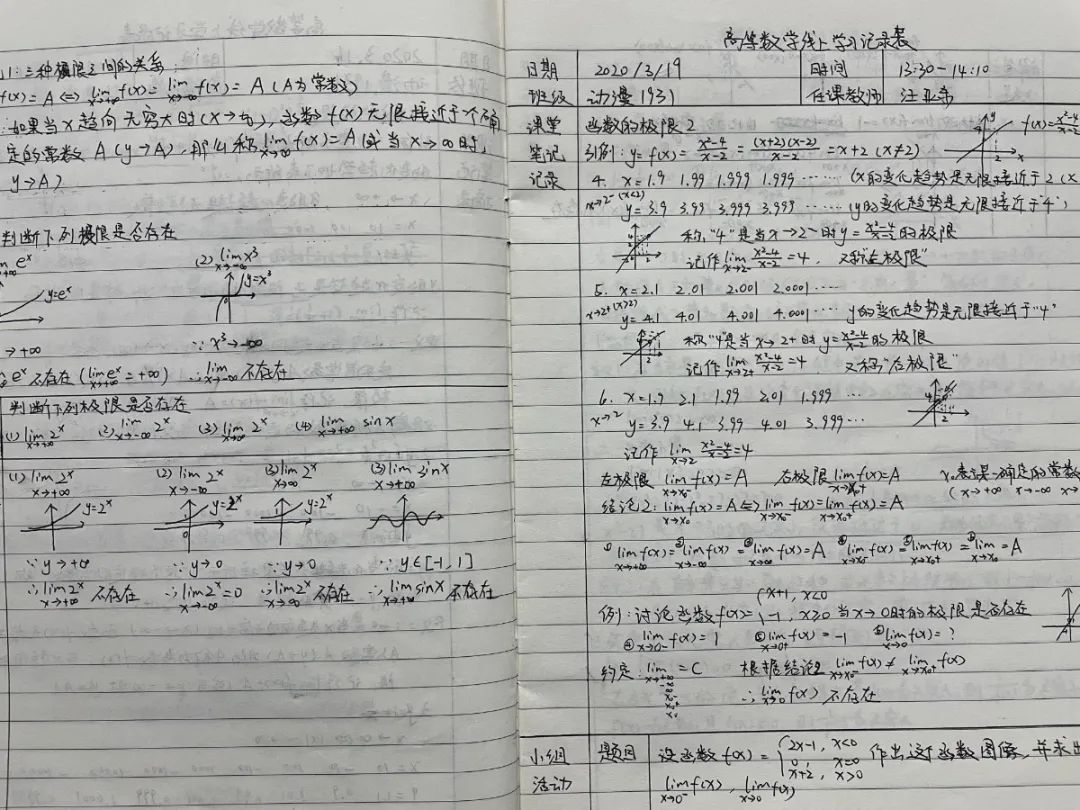 1:三种极限之间的关系
f(x)=A⇔lim x→+∞ f(x)=lim x→-∞ f(x)=A(A为常数)
:如果当x趋向无穷大时(x→∞),函数f(x)无限接近于一个确
定的常数A(y→A),那么称lim x→∞ f(x)=A(或当x→∞时,
y→A)
判断下列极限是否存在
eˣ (2) lim x→-∞ x³
y=eˣ y=x³
→+∞ ∵x³→-∞
eˣ不存在(lim x→+∞ eˣ=+∞) ∴lim x→-∞ 不存在
判断下列极限是否存在
(1) lim x→+∞ 2ˣ (2) lim x→-∞ 2ˣ (3) lim x→∞ 2ˣ (4) lim x→+∞ sinx
(1) lim x→+∞ 2ˣ (2) lim x→-∞ 2ˣ (3) lim x→∞ 2ˣ (3) lim x→+∞ sinx
y=2ˣ y=2ˣ y=2ˣ
∵y→+∞ ∵y→0 ∵y→0 ∵y∈[-1,1]
∴lim x→+∞ 2ˣ不存在 ∴lim x→-∞ 2ˣ=0 ∴lim x→∞ 2ˣ不存在 ∴lim x→+∞ sinx不存在
高等数学线上学习记录表
日期 2020/3/19 时间 13:30-14:10
班级 动漫1931 任课教师
课堂 函数的极限2 f(x)=x²-4/x-2
笔记 引例:y=f(x)=x²-4/x-2=(x+2)(x-2)/x-2=x+2(x≠2)
记录 4. x=1.9 1.99 1.999 1.999……(x的变化趋势是无限接近于2(x
x→2⁻(x<2) y=3.9 3.99 3.999 3.999……(y的变化趋势是无限接近于4,
称"4"是当x→2⁻时y=x²-4/x-2的极限
记作lim x→2⁻ x²-4/x-2=4,又称"左极限"
5. x=2.1 2.01 2.001 2.0001……
x→2+(x>2) y=4.1 4.01 4.001 4.0001…… y的变化趋势是无限接近于"4"
称"4"是当x→2+时y=x²-4/x-2的极限
记作lim x→2+ x²-4/x-2=4 又称"右极限"
6. x=1.9 2.1 1.99 2.01 1.999…
x→2 y=3.9 4.1 3.99 4.01 3.999…
记作 lim x→2 x²-4/x-2=4
左极限 lim x→x₀⁻ f(x)=A 右极限 lim x→x₀+ f(x)=A x₀表某一确定的常数
(x→+∞ x→-∞ x→
结论2:lim x→x₀ f(x)=A⇔lim x→x₀⁻ f(x)=lim x→x₀+ f(x)=A
①lim x→+∞ f(x)=②lim x→-∞ f(x)=③lim x→∞ f(x)=A ④lim x→x₀⁻ f(x)=⑤lim x→x₀+ f(x)=⑥lim x→x₀=A
例:讨论函数f(x)={x+1, x<0 -1, x≥0 当x→0时的极限是否存在
④lim x→0⁻ f(x)=1 ⑤lim x→0+ f(x)=-1 ⑥lim x→0 f(x)=?
约定:lim =C 根据结论2 lim x→x₀⁻ f(x)≠lim x→x₀+ f(x)
∴lim x→0 f(x)不存在
小组 题目 设函数f(x)={2x-1, x<0 0, x=0 x+2, x>0 作出这个函数图像,并求出
活动 lim x→0⁻ f(x), lim x→0 f(x)